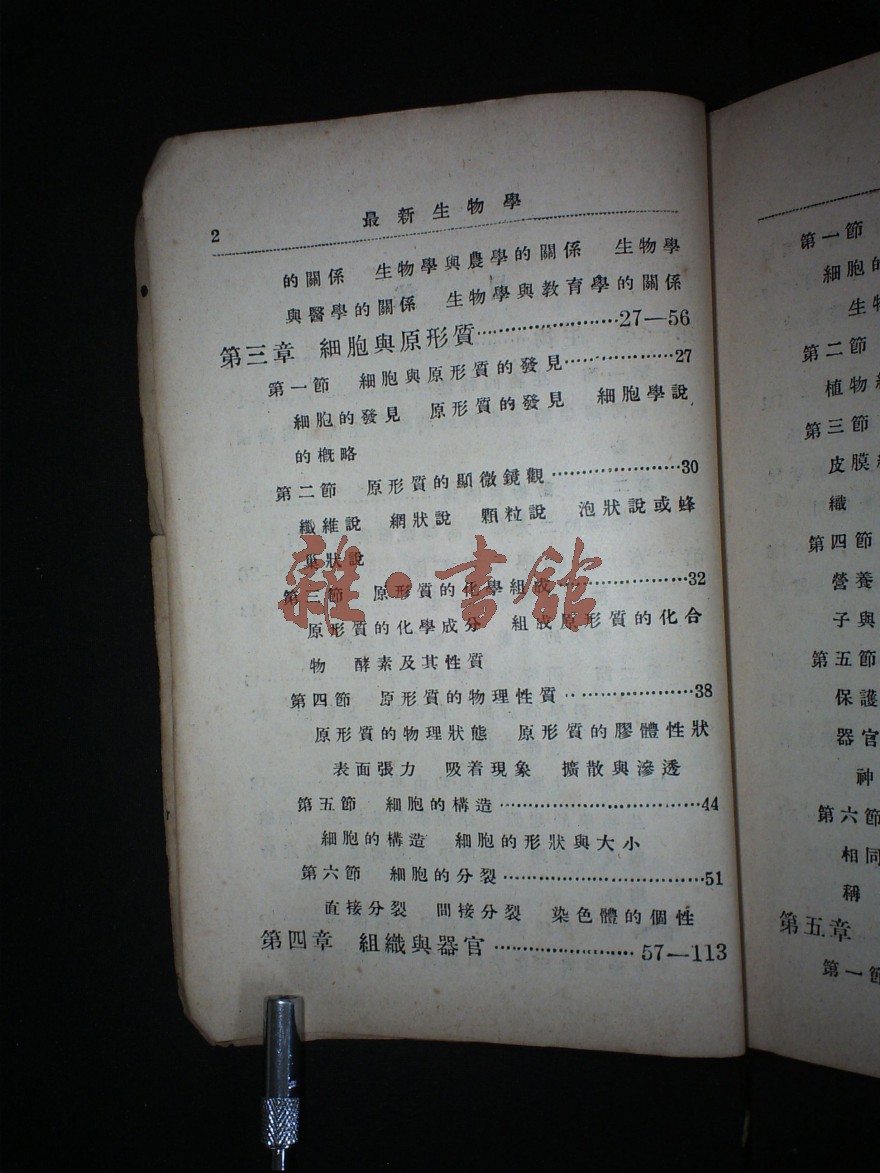 2
最新生物學
的關係 生物學與農學的關係 生物學
與醫學的關係 生物學與教育學的關係
第三章 細胞與原形質……………………27—56
第一節 細胞與原形質的發見………………27
細胞的發見 原形質的發見 細胞學說
的概略
第二節 原形質的顯微鏡觀…………………30
纖維說 網狀說 顆粒說 泡狀說或蜂
巢狀說
第三節 原形質的化學組成…………………32
原形質的化學成分 組成原形質的化合
物 酵素及其性質
第四節 原形質的物理性質…………………38
原形質的物理狀態 原形質的膠體性狀
表面張力 吸着現象 擴散與滲透
第五節 細胞的構造……………………………44
細胞的構造 細胞的形狀與大小
第六節 細胞的分裂……………………………51
直接分裂 間接分裂 染色體的個性
第四章 組織與器官…………………57—113
雜·書館
第一節
細胞的
生物
第二節
植物
第三節
皮膜
織
第四節
營養
子與
第五節
保護
器官
神
第六節
相同
稱
第五章
第一節